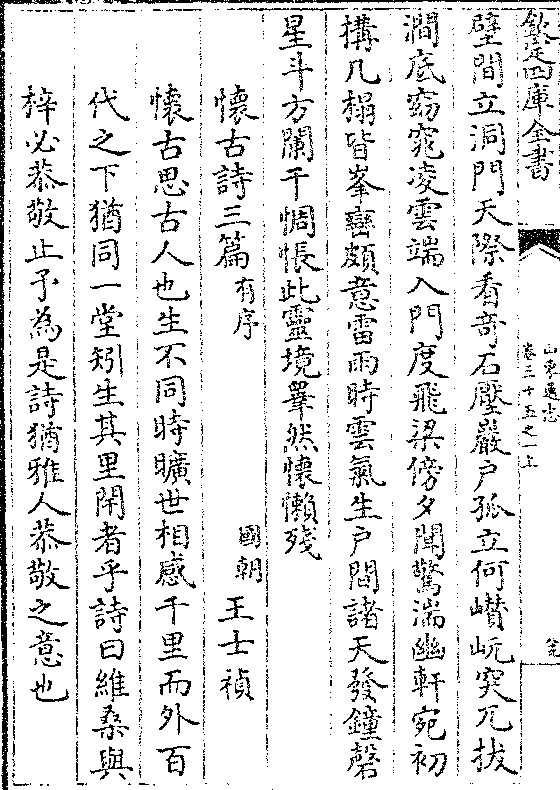 欽定四庫全書
山東通志
卷三十五之一上
壁間立洞門天際看奇石壓巖戶孤立何巑岏突兀拔
澗底窈窕凌雲端入門度飛梁傍夕聞驚湍幽軒宛初
搆几榻皆峯巒頗意雷雨時雲氣生戶間諸天發鐘磬
星斗方闌干惆悵此靈境羣然懷懶殘
懷古詩三篇有序 國朝王士禎
懷古思古人也生不同時曠世相感千里而外百
代之下猶同一堂矧生其里閈者乎詩曰維桑與
梓必恭敬止予為是詩猶雅人恭敬之意也